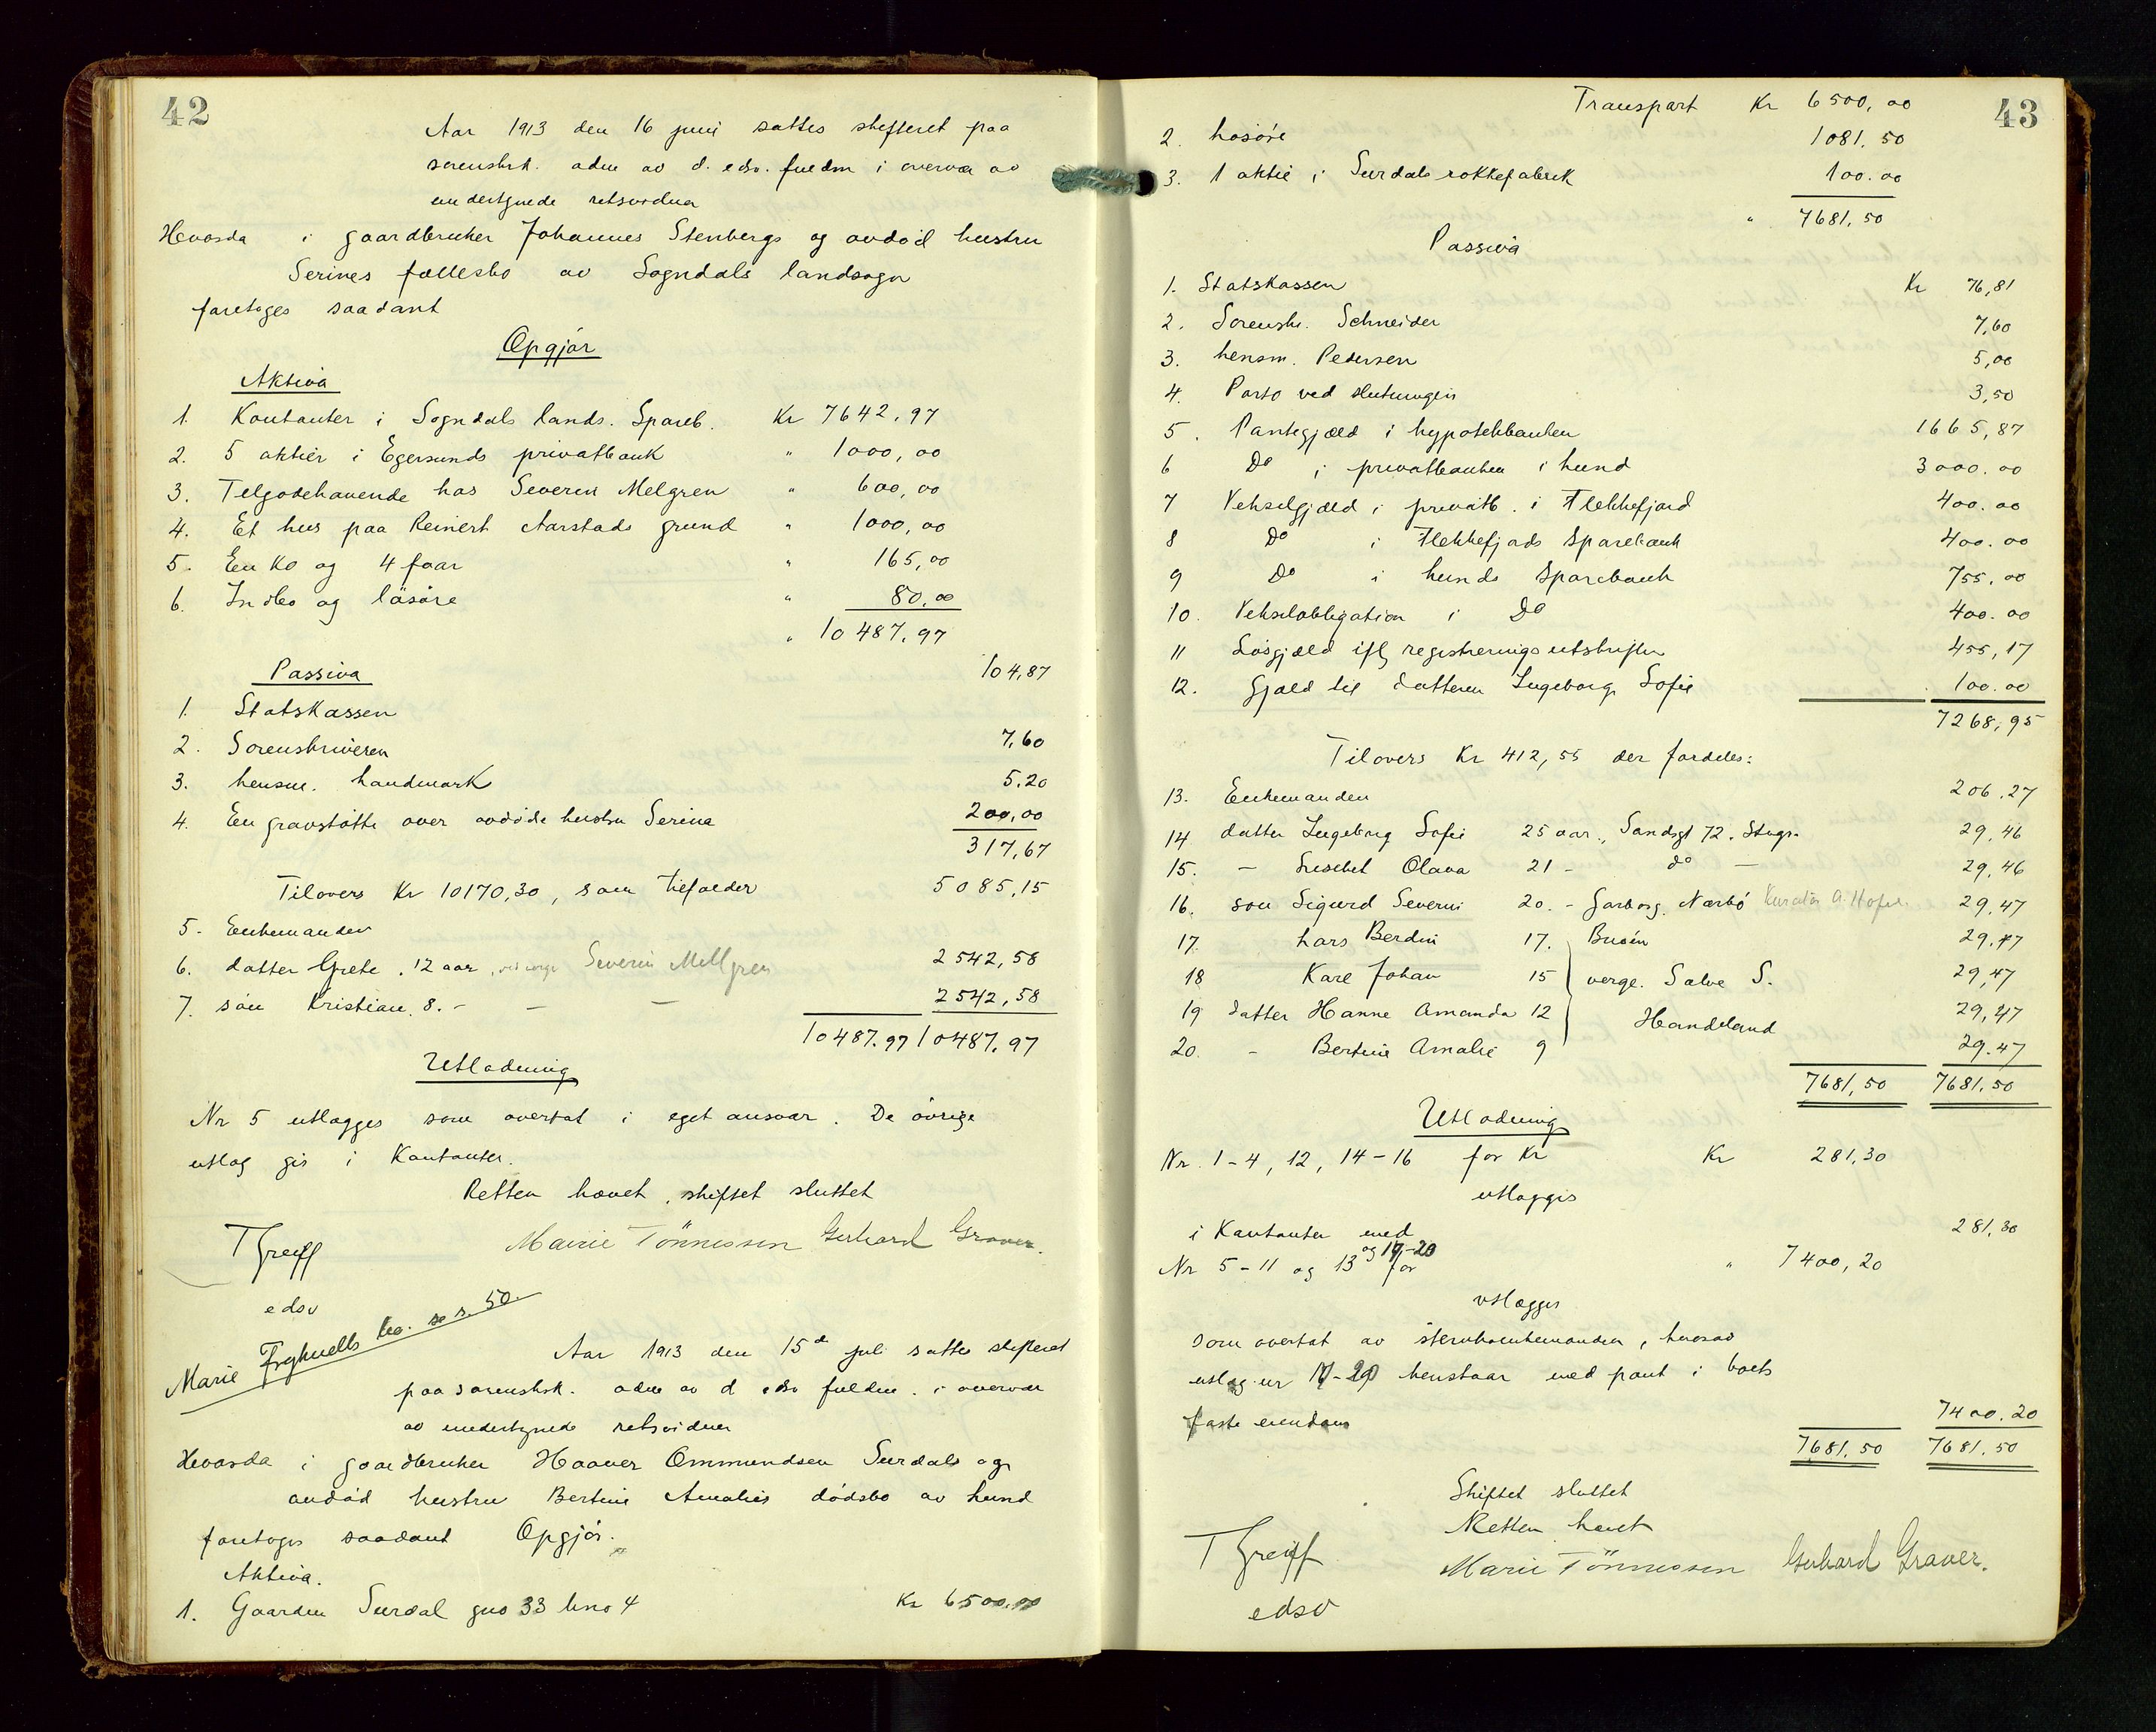 42
Aar 1913 den 16 juni sattes skifteret paa
sorenskrk. adm av d. edsv. fuldm i overvær av
undertegnede retsvidner
Hvorda i gaardbruker Johannes Stenbergs og avdød hustru
Serines fællesbo av Sogndals landsogn
foretoges saadant
Opgjør
Aktiva
1. Kontanter i Sogndals lands. Spareb. Kr 7642,97
2. 5 aktier i Egersunds privatbank " 1000,00
3. Tilgodehavende hos Severin Melgren " 600,00
4. Et hus paa Reinert Aarstads grund " 1000,00
5. En ko og 4 faar " 165,00
6. Indbo og løsøre " 80,00
" 10487,97
Passiva
1. Statskassen 104,87
2. Sorenskriveren 7,60
3. lensm. Landmark 5.20
4. En gravstøtte over avdøde hustru Serina 200,00
317,67
Tilovers Kr 10170,30, som tilfalder
5. Enkemanden 5085,15
6. datter Grete, 12 aar, ved verge Severin Mellgren 2542,58
7. søn Kristian, 8. - - - 2542,58
10487.97 10487,97
Utlodning
Nr 5 utlægges som overtat i eget ansvar. De øvrige
utlæg gis i Kontanter.
Retten hævet, skiftet sluttet
T Greiff Marie Tønnessen Gerhard Graver.
edsv
Marie bo. se s. 50.
Aar 1913 den 15de juli sattes skifteret
paa sorenskrk. adm av d edsv fuldm. i overvær
av undertegnede retsvidner
Hvorda i gaardbruker Haaver Ommundsen Surdals og
avdød hustru Bertine Amalies dødsbo av Lund
foretoges saadant Opgjør.
Aktiva.
1. Gaarden Surdal gno 33 bno 4 Kr 6500,00
43
Transport Kr 6500,00
2. Løsøre 1081,50
3. 1 aktie i Surdals rokkefabrik 100.00
" 7681,50
Passiva
1. Statskassen Kr 76,81
2. Sorenskr. Schneider 7,60
3. lensm. Pedersen 5,00
4. Porto ved slutningen 3,50
5. Pantegjæld i hypotekbanken 1665,87
6 Do i privatbanken i Lund 3000.00
7 Vekselgjæld i privatb. i Flekkefjord 400.00
8 Do i Flekkefjords Sparebank 400.00
9 Do i Lunds Sparebank 755,00
10. Vekselobligation i Do 400.00
11 Løsgjæld ifl registreringsutskriften 455,17
12. Gjæld til datteren Ingeborg Sofie 100.00
7268,95
Tilovers Kr 412,55 der fordeles:
13. Enkemanden 206.27
14 datter Ingeborg Sofie 25 aar., Sandsgt 72. Stvgr. 29,46
15. - Lisebet Olava 21 - do - 29,46
16. søn Sigurd Severin 20. - Garborg. Nærbø Kurator A. 29,47
17. Lars Berdin 17. Bruen 29.47
18 Karl Johan 15 verge. Salve S. 29,47
19 datter Hanne Amanda 12 Handeland 29,47
20. - Bertine Amalie 9 29.47
7681,50 7681.50
Utlodning
Nr. 1-4, 12, 14-16 for Kr Kr 281,30
utlægges
i Kontanter med 281,30
Nr 5-11 og 13 og 17-20 for " 7400,20
utlægges
som overtat av stervboenkemanden, hvorav
utlæg nr 17-20 henstaar med pant i boets
faste eiendom 7400.20
7681.50 7681.50
Skiftet sluttet
Retten hævet
T Greiff Marie Tønnessen Gerhard Graver.
edsv